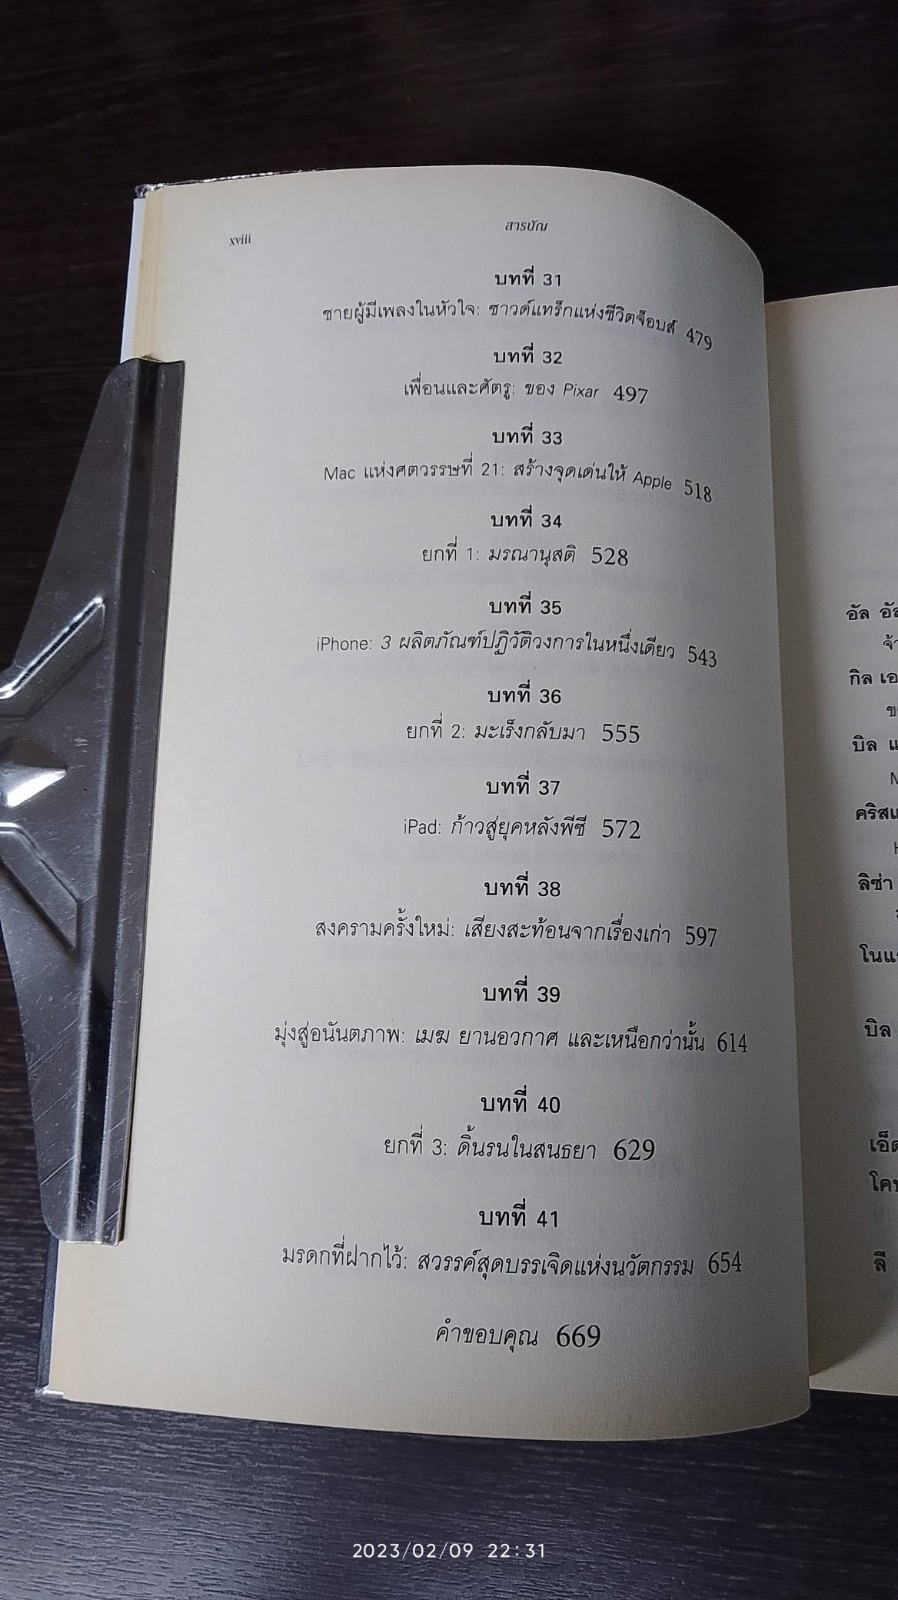 xviii
สารบัญ
บทที่ 31
ชายผู้มีเพลงในหัวใจ: ซาวด์แทร็กแห่งชีวิตจ็อบส์ 479
บทที่ 32
เพื่อนและศัตรู: ของ Pixar 497
บทที่ 33
Mac แห่งศตวรรษที่ 21: สร้างจุดเด่นให้ Apple 518
บทที่ 34
ยกที่ 1: มรณานุสติ 528
บทที่ 35
iPhone: 3 ผลิตภัณฑ์ปฏิวัติวงการในหนึ่งเดียว 543
บทที่ 36
ยกที่ 2: มะเร็งกลับมา 555
บทที่ 37
iPad: ก้าวสู่ยุคหลังพีซี 572
บทที่ 38
สงครามครั้งใหม่: เสียงสะท้อนจากเรื่องเก่า 597
บทที่ 39
มุ่งสู่อนันตภาพ: เมฆ ยานอวกาศ และเหนือกว่านั้น 614
บทที่ 40
ยกที่ 3: ดิ้นรนในสนธยา 629
บทที่ 41
มรดกที่ฝากไว้: สวรรค์สุดบรรเจิดแห่งนวัตกรรม 654
คำขอบคุณ 669
อัล
กิล
บิล
ลิซ่า
บิล
ลี
2023/02/09 22:31